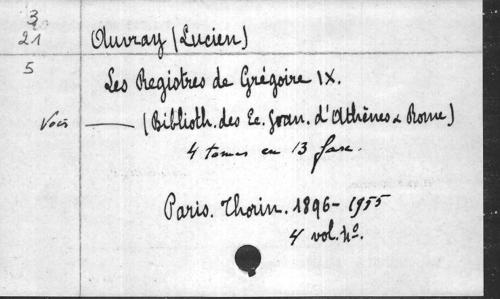 3
21 Auvray (Lucien)
5
Les Registres de Grégoire IX.
Voir — (Biblioth. des Ec. fran. d'Athènes & Rome)
4 tomes en 13 fasc.
Paris. Thorin. 1896-1955
4 vol. 4º.